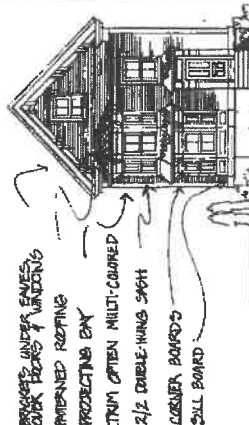 BRACKETS UNDER EAVES,
OVER DOORS & WINDOWS
PATTERNED ROOFING
PROJECTING BAY
TRIM OFTEN MULTI-COLORED
2/2 DOUBLE-HUNG SASH
CORNER BOARDS
SILL BOARD